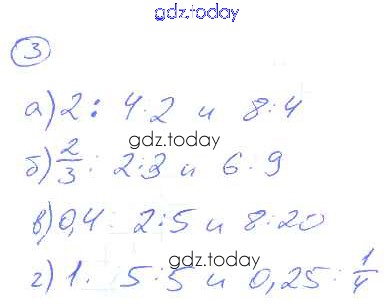 gdz.today
3
а) 2 : 4:2 и 8:4
gdz.today
б) 2/3 : 2:3 и 6:9
в) 0,4 : 2:5 и 8:20
gdz.today
г) 1. 5:5 и 0,25 : 1/4